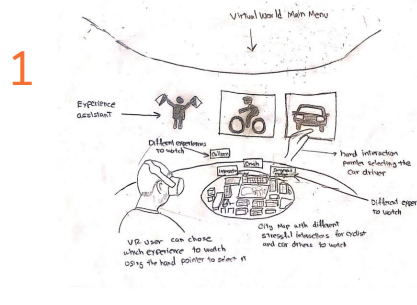 1
Virtual World Main Menu
Experience
assistant
Different experiences
to watch
hand interaction
pointer selecting the
Car driver
Crash
Different exper
to watch
City Map with different
stressful interactions for cyclist
and car drivers to watch
VR user can chose
which experience to watch
using the hand pointer to select it